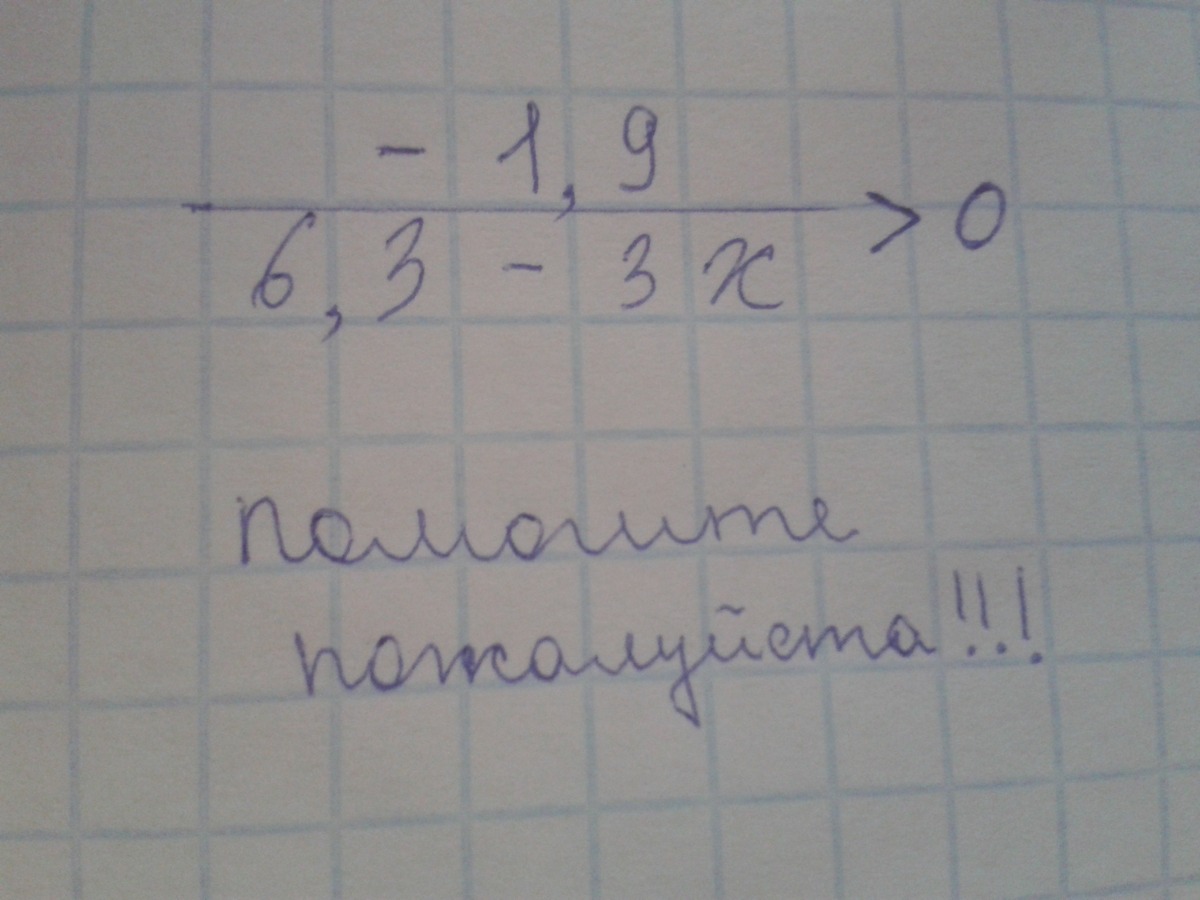 - 1,9
6,3 - 3x > 0
помогите
пожалуйста!!!